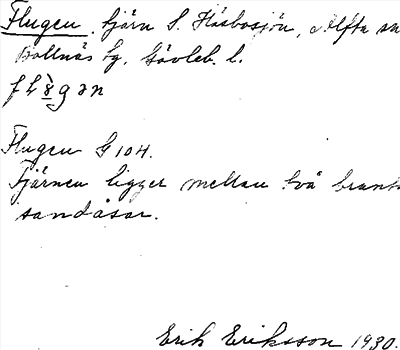 Flugen. tjärn S. Häsbosjön, Alfta sn
Bollnäs tg. Gävleb. l.
Flugen G 104.
Tjärnen ligger mellan två brant
sandåsar.
Erik Eriksson 1930.